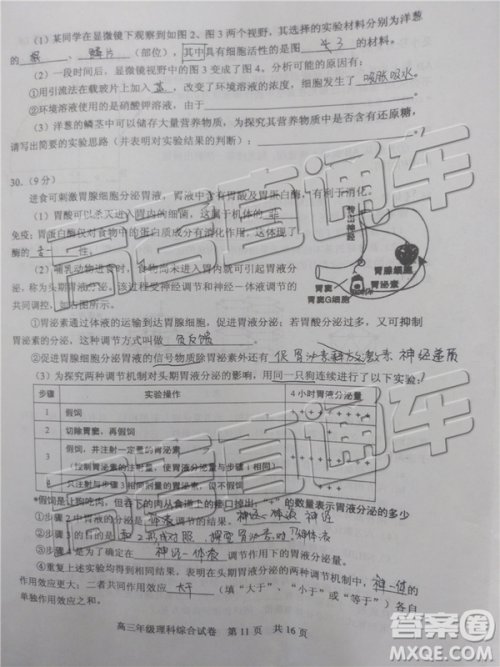 (1)某同学在显微镜下观察到如图2、图3两个视野,其选择的实验材料分别为洋葱
的 根 、 鳞片 (部位),其中具有细胞活性的是图 3 的材料。
(2)一段时间后,显微镜视野中的图3变成了图4。分析可能的原因有:
①用引流法在载玻片上加入 蒸 ,改变了环境溶液的浓度,发生了 吸胀吸水。
②环境溶液使用的是硝酸钾溶液,由于
(3)洋葱的鳞茎中可以储存大量营养物质,为探究其营养物质中是否含有还原糖,
请写出简要的实验思路(并表明对实验结果的判断):
30.(9分)
进食可刺激胃腺细胞分泌胃液,胃液中含有胃酸及胃蛋白酶,有利于消化。
(1)胃酸可以杀灭进入胃内的细菌,这属于机体的 非
免疫;胃蛋白酶仅对食物中的蛋白质成分具有消化作用,这体现了
酶的 专一 性。
(2)哺乳动物进食时,食物尚未进入胃内就可引起胃液分
泌,称为头期胃液分泌,该过程受神经调节和神经—体液调节的
共同调控,如右图所示。
①胃泌素通过体液的运输到达胃腺细胞,促进胃液分泌;若胃酸分泌过多,又可抑制
胃泌素的分泌,这种调节方式叫做 负反馈 。
②促进胃腺细胞分泌胃液的信号物质除胃泌素外还有 神经递质
(3)为探究两种调节机制对头期胃液分泌的影响,用同一只狗连续进行了以下实验:
步骤 实验操作 4小时胃液分泌量
1 假饲
2 切除胃窦,再假饲
3 假饲,并注射一定量的胃泌素
(控制胃泌素的注射量,使胃液分泌量与步骤1相同)
4 只注射与步骤3相同剂量的胃泌素,不假饲
*假饲是让狗吃肉,但吞下的肉从食道上的瘘口掉出;"+"的数量表示胃液分泌的多少
①步骤2中胃液的分泌是 神经
②步骤3的目的是
③步骤4是为了确定在 神经—体液 调节作用下的胃液分泌量。
④重复上述实验均得到相同结果,表明在头期胃液分泌的两种调节机制中,
作用效应更大;二者共同作用效应 大于 (填"大于"、"小于"或"等于")各自
单独作用效应之和。
高三年级理科综合试卷 第11页 共16页
神经
胃窦
胃窦G细胞
胃腺细胞
胃泌素
高考直通车
高考直通车
答案圈
MXQE.COM